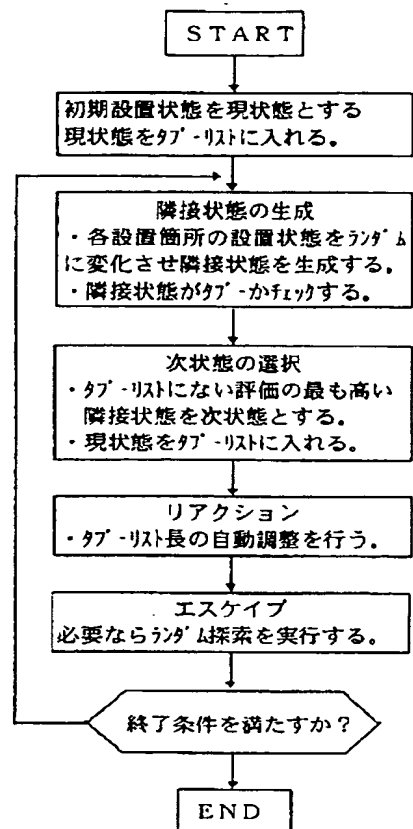 START
初期設置状態を現状態とする
現状態をﾀﾌﾞｰﾘｽﾄに入れる。
隣接状態の生成
・各設置箇所の設置状態をﾗﾝﾀﾞﾑ
に変化させ隣接状態を生成する。
・隣接状態がﾀﾌﾞｰかﾁｪｯｸする。
次状態の選択
・ﾀﾌﾞｰﾘｽﾄにない評価の最も高い
隣接状態を次状態とする。
・現状態をﾀﾌﾞｰﾘｽﾄに入れる。
リアクション
・ﾀﾌﾞｰﾘｽﾄ長の自動調整を行う。
エスケイプ
必要ならﾗﾝﾀﾞﾑ探索を実行する。
終了条件を満たすか？
END